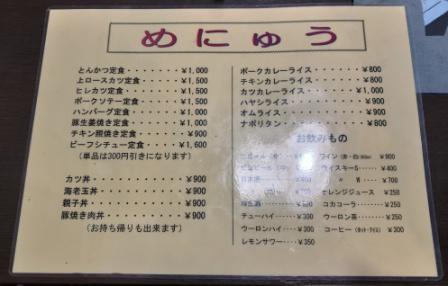 めにゅう
とんかつ定食・・・・・・・¥1,000
上ロースカツ定食・・・・・¥1,500
ヒレカツ定食・・・・・・・¥1,500
ポークソテー定食・・・・・¥1,000
ハンバーグ定食・・・・・・¥1,000
豚生姜焼き定食・・・・・・¥900
チキン照焼き定食・・・・・¥900
ビーフシチュー定食・・・・¥1,600
(単品は300円引きになります)
カツ丼・・・・・・・・・・¥900
海老玉丼・・・・・・・・・¥900
親子丼・・・・・・・・・・¥900
豚焼き肉丼・・・・・・・・¥900
(お持ち帰りも出来ます)
ポークカレーライス・・・・¥800
チキンカレーライス・・・・¥800
カツカレーライス・・・・・¥1,000
ハヤシライス・・・・・・・¥900
オムライス・・・・・・・・¥900
ナポリタン・・・・・・・・¥800
お飲みもの
チューハイ・・・・¥350
ウーロンハイ・・・¥350
レモンサワー・・・¥350
¥900
ウイスキーS・・・・¥400
〃 W・・・・¥700
オレンジジュース・・¥250
コカコーラ・・・・¥250
ウーロン茶・・・・¥250
コーヒー(ホット・アイス)・・¥300